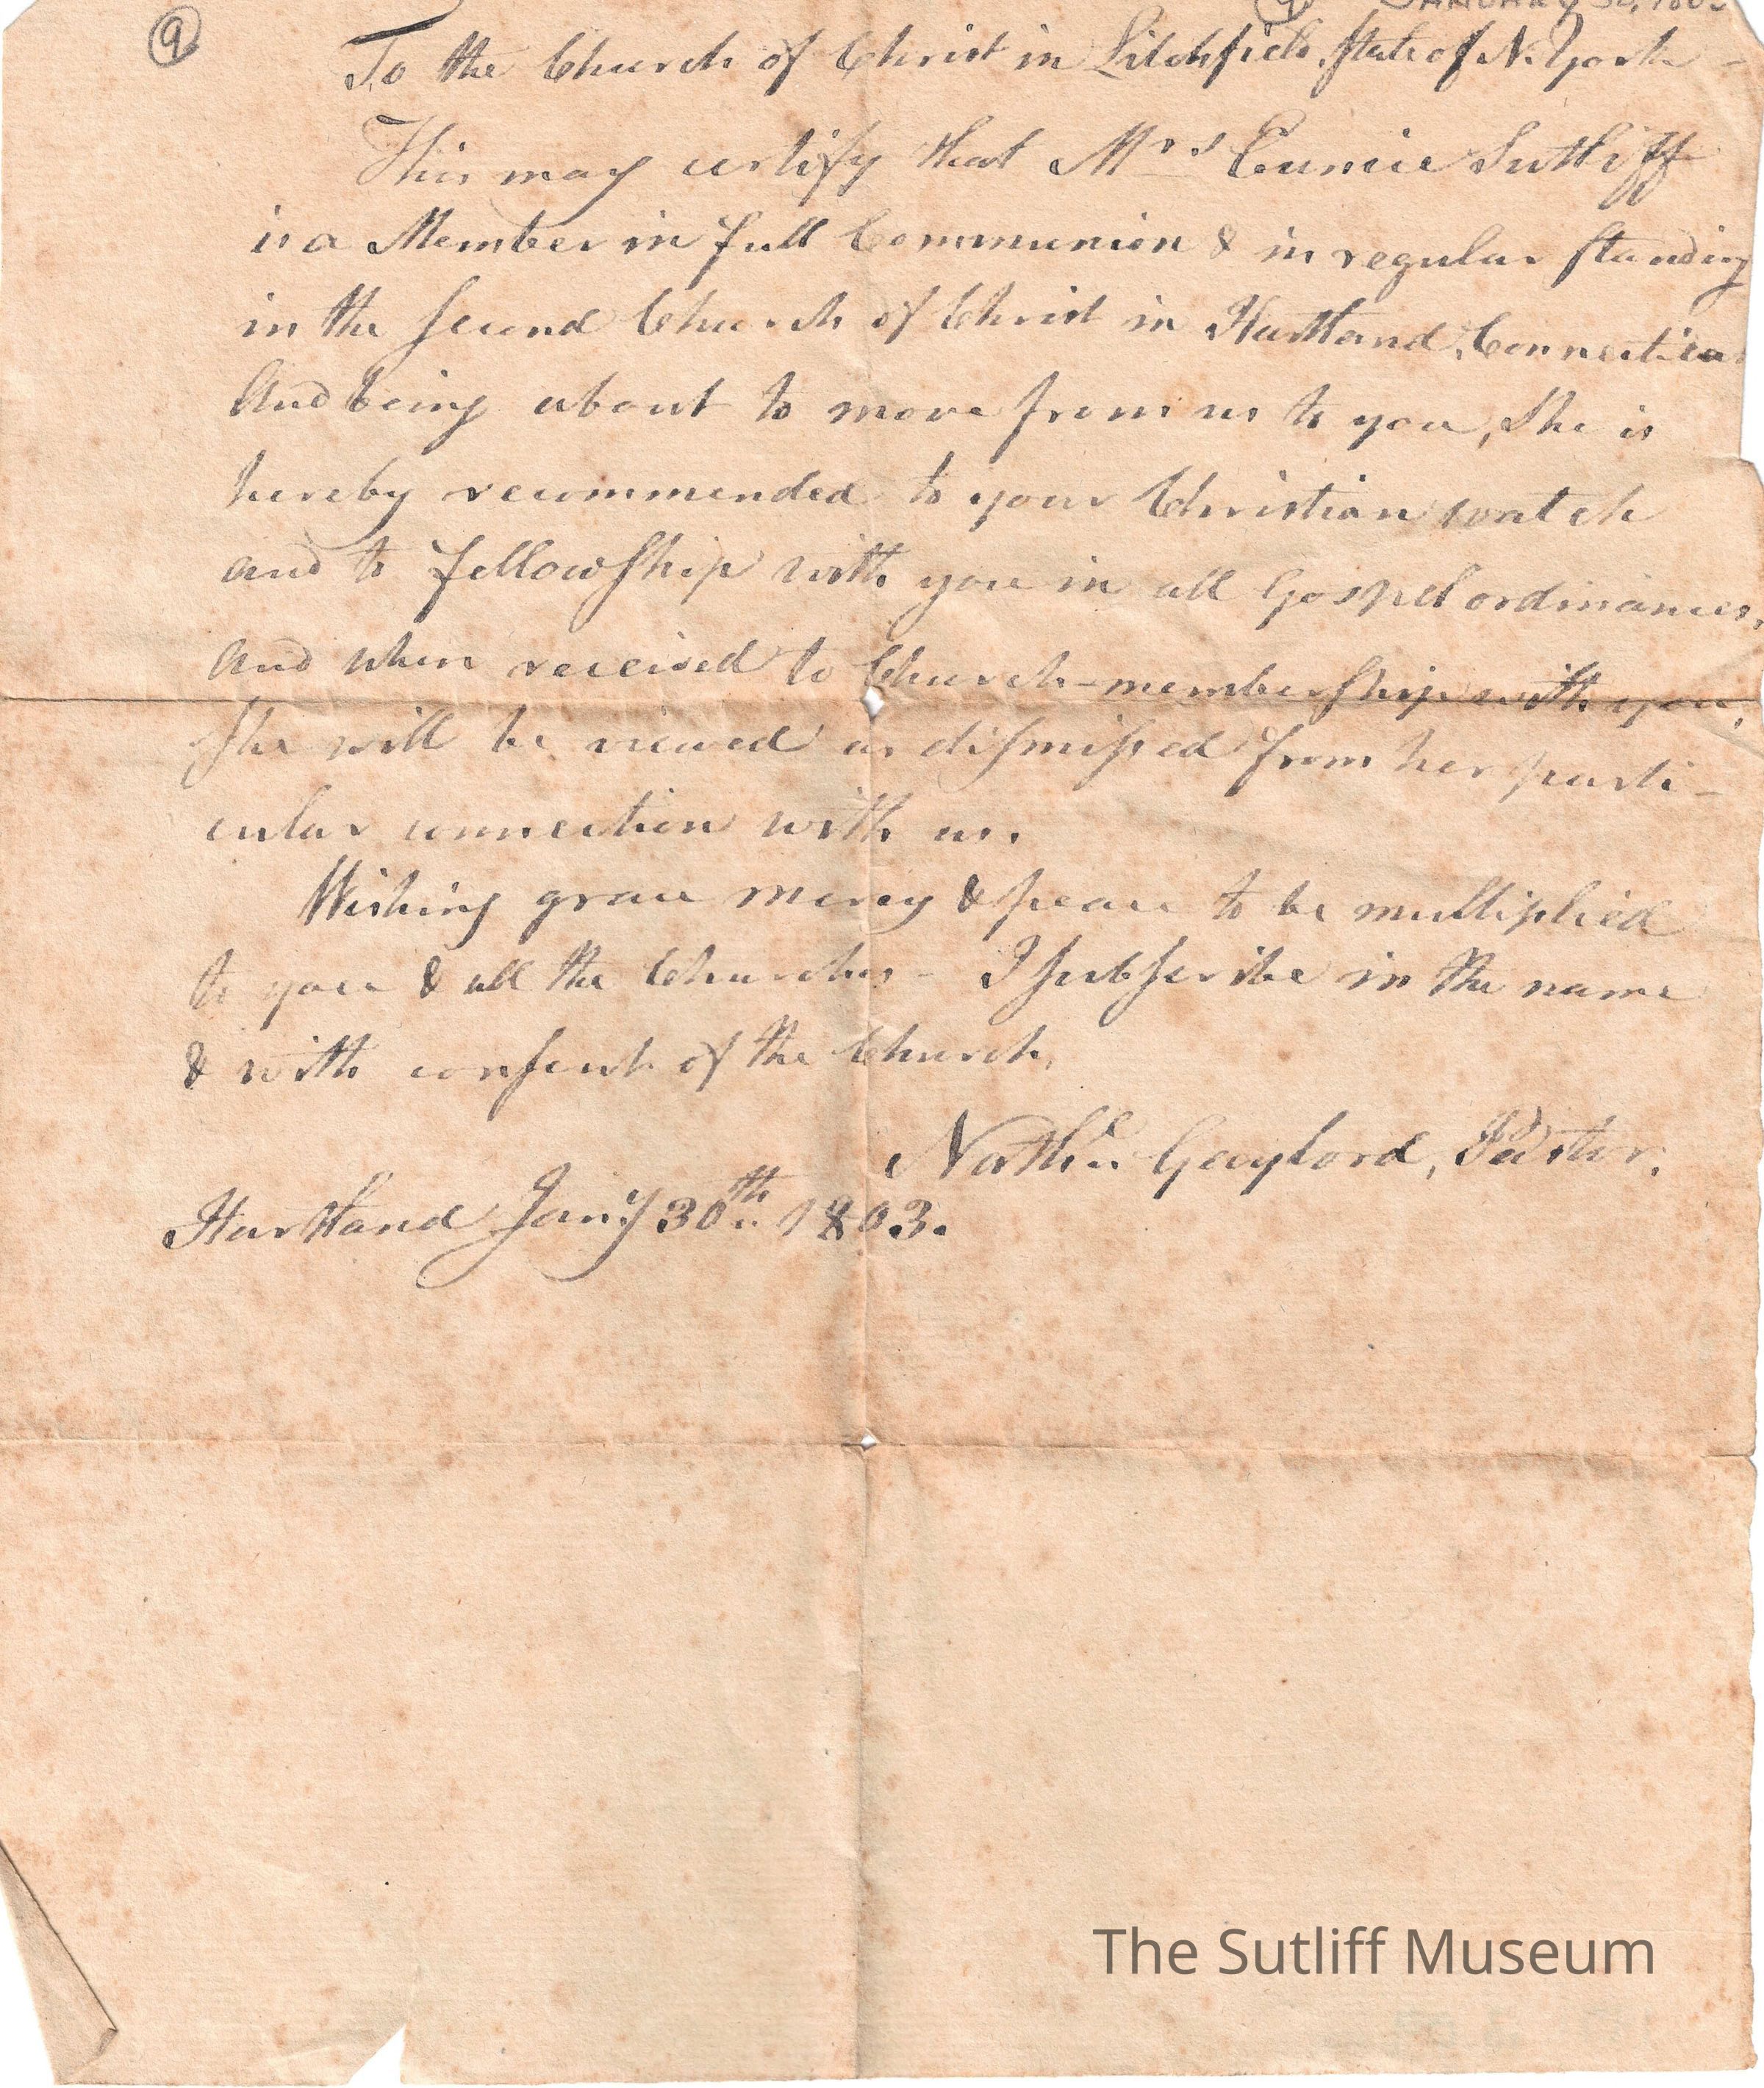 9
To the Church of Christ in Litchfield, State of N. York –
This may certify that Mrs Eunice Sutliff
is a Member in full Communion & in regular standing
in the second Church of Christ in Hartland, Connecticut
And being about to move from us to you, She is
hereby recommended to your Christian watch
and to fellowship with you in all Gospel ordinances,
And when received to Church-membership with you,
She will be viewed as dismissed from her parti-
cular connection with us.
Wishing grace mercy & peace to be multiplied
to you & all the Churches – I subscribe in the name
& with consent of the Church,
Nathll Gaylord, Pastor.
Hartland Jany 30th 1803.
The Sutliff Museum